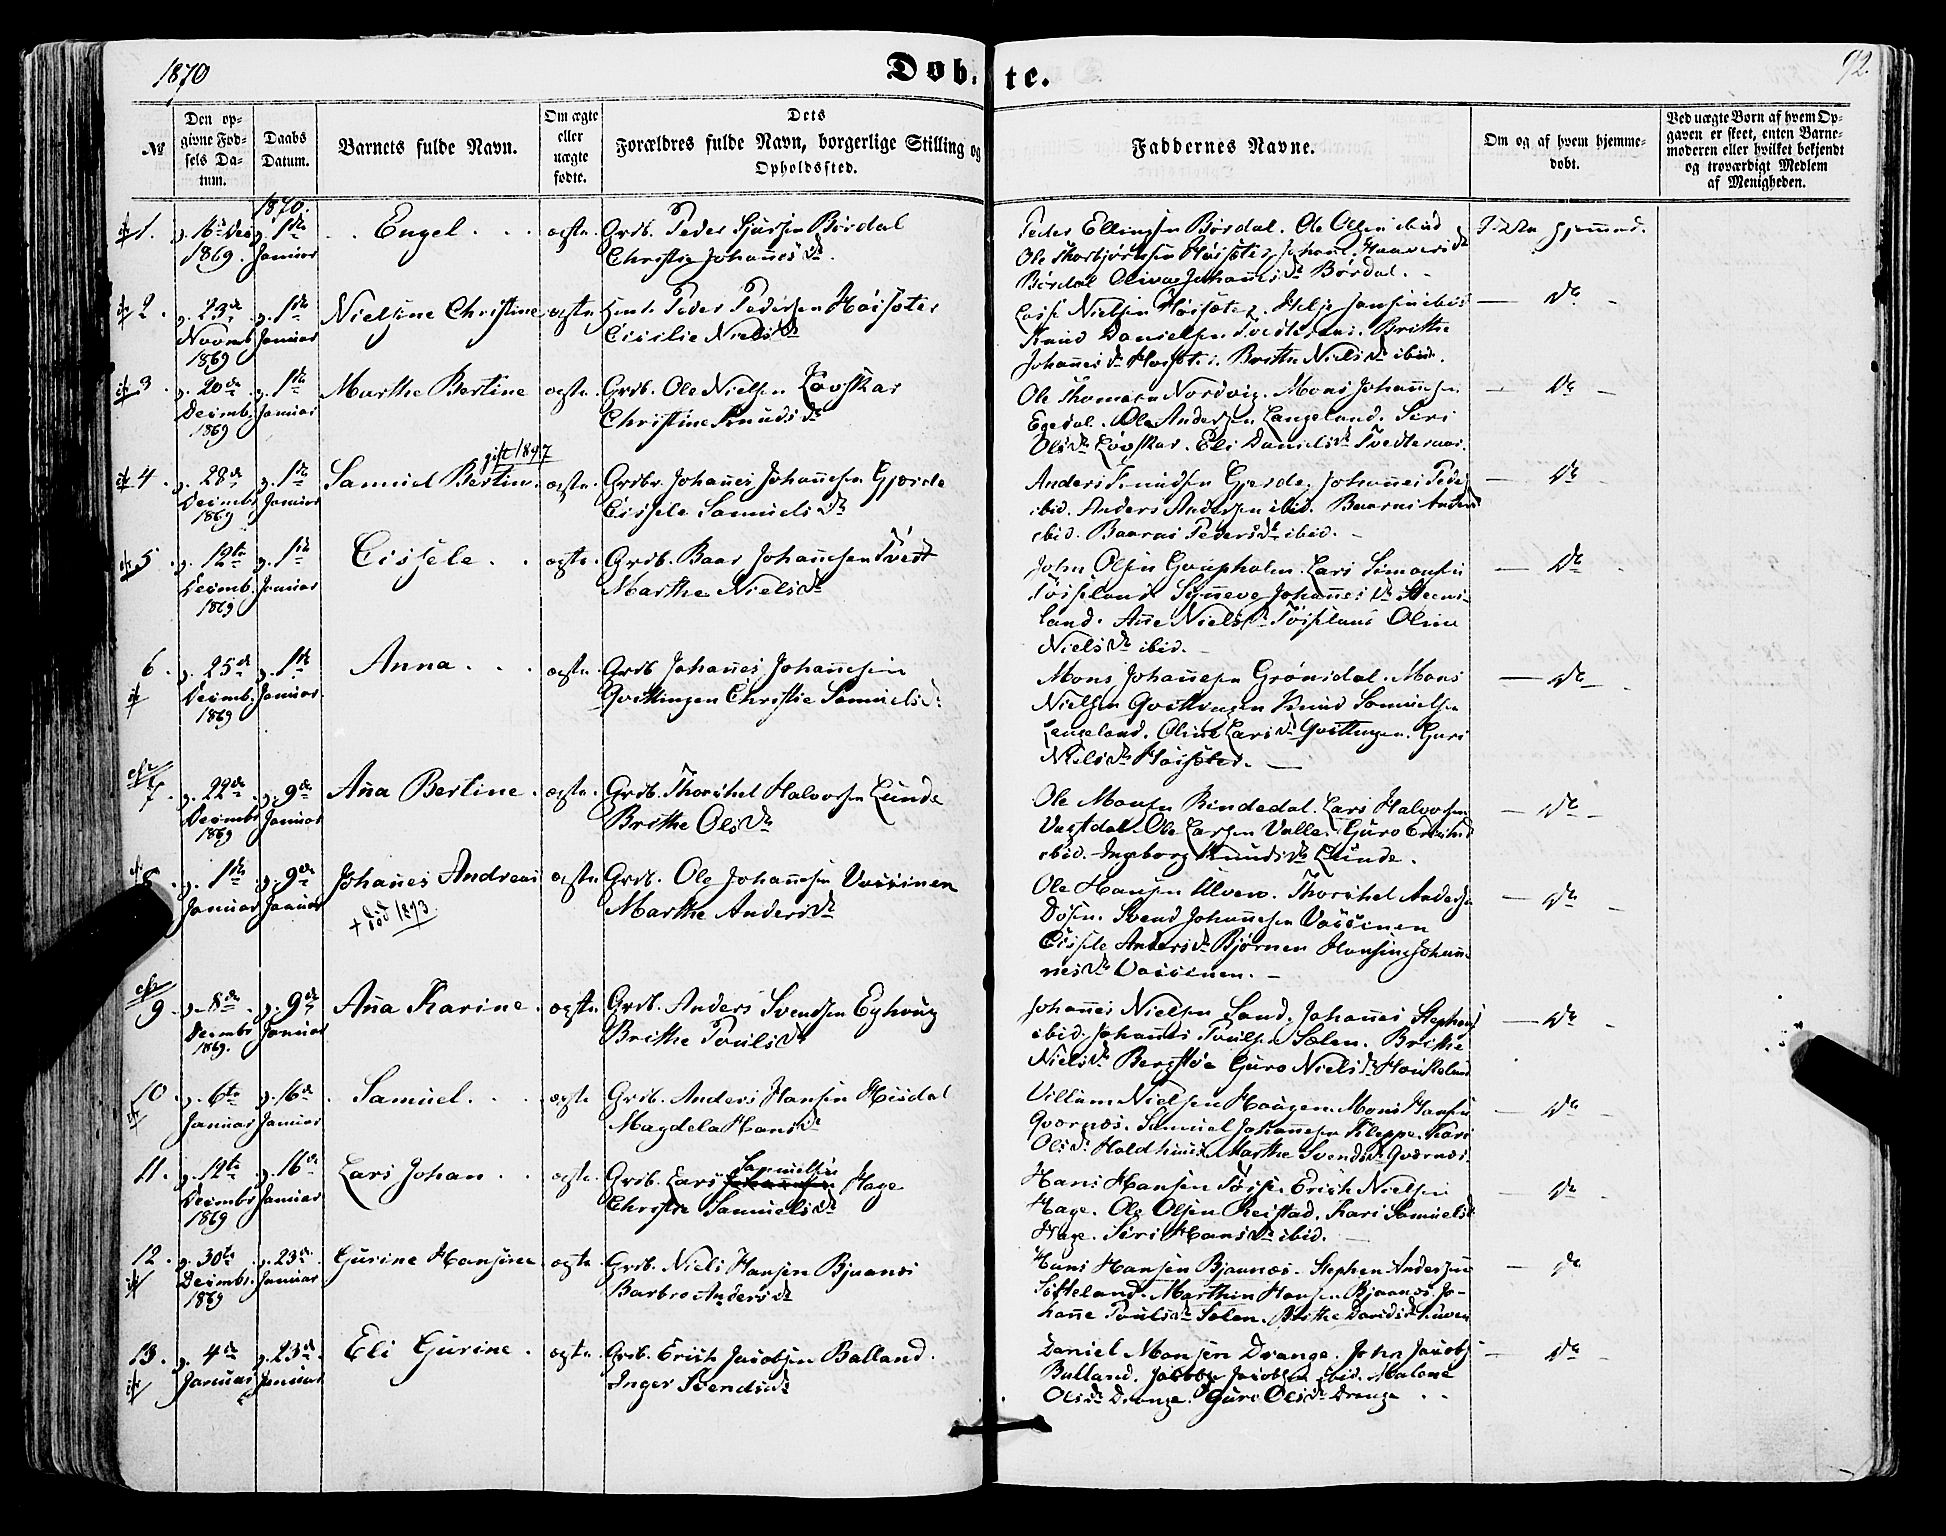 1870
Døbte.
92.
№
Den opgivne Fødsels Datum.
Daabs Datum.
Barnets fulde Navn.
Om ægte eller uægte fødte.
Dets Forældres fulde Navn, borgerlige Stilling og Opholdssted.
Faddernes Navne.
Om og af hvem hjemmedøbt.
Ved uægte Børn af hvem Opgaven er skeet, enten Barnemoderen eller hvilket bekjendt og troværdigt Medlem af Menigheden.
1870.
1. 16de Dec 1869. 1ste Januar
Engel
ægte
Grdb. Peder Sjursen Børdal
Christie Johannesdr.
Peder Ellingsen Børdal. Ole Olsen ibid
Ole Thorbjørnsen Høisæter,
Børdal Johannesdr Børdal.
Ikke hjemmed.
2. 23de Novemb 1869 1ste Januar
Nielsine Christine
ægte
Peder Pedersen Høisæter
Cicilie Nielsdr
Nielsen Høisæter. Helje Jansen ibid
Knud Danielsen Tvedteraas. Brithe
Johannesdr Høisæter. Brithe Nielsdr ibid.
Do
3. 20de Decemb. 1869 1ste Januar
Marthe Bertine
ægte
Grdb. Ole Nielsen Løvskar
Christine Knudsdr
Ole Thomasen Nordvig. Mons Johannesen
Egedal. Ole Andersen Langeland. Siri
Olsdr Løvskar. Eli Danielsdr Tvedteraas.
Do
gift 1897
4. 28de Decembr 1869 1ste Januar
Samuel Bertin
ægte
Grdbr. Johannes Johannesen Gjerde
Cissele Samuelsdr
Anders Knudsen Gjerde, Johannes Peders
ibid. Anders Andersen ibid.
ibid. Pedersdr ibid.
Do
5. 12te Decemb. 1869 1ste Januar
Cissele
ægte
Grdb. Baar Johannesen Tvedt
Marthe Nielsdr
John Olsen Lars Simonsen
Synneve Johannesdr
land. Ane Nielsdr Oline
Nielsdr ibid.
Do
6. 25de Decemb. 1869 1ste Januar
Anna
ægte
Grdb Johannes Johannesen
Qvittingen Christie Samuelsdr
Mons Johannesen Grønsdal. Mons
Nielsen Qvittingen Knud Samuelsen
Langeland. Oline Larsdr Qvittingen. Guri
Nielsdr Høisæter.
Do
7. 22de Decembr 1869 9de Januar
Ana Bertine
ægte
Grdb. Thorchel Halvorsen Lunde
Brithe Olsdr
Ole Monsen Rendedal. Lars Halvorsen
Vastdal. Ole Larsen Valle. Guro
ibid. Ingeborg Knudsdr Lunde.
Do
8. 1ste Januar 9de Januar
Johanes Andreas
+ død 1873.
ægte
Grdb. Ole Johannesen Vassenen
Marthe Andersdr
Ole Hansen Ulven. Thorchel Andersen
Døsen. Svend Johannesen Vassenen
Cissele Andersdr Bjørnen Hansine Johan-
nesdr Vassenen.
Do
9. 8de Decembr 1869. 9de Januar
Ana Karine
ægte
Grdb. Anders Svendsen Eghoug
Brithe Poulsdr
Johannes Nielsen Sand. Johannes Stephens
ibid. Johannes Poulsen Sælen. Brithe
Nielsdr Bergstøe Guro Nielsdr Haukeland
Do
10. 6te Januar 16de Januar
Samuel
ægte
Grdb. Anders Hansen Hiisdal
Magdela Hansdr
Villum Nielsen Haugen. Mons Hansen
Qvernæs. Samuel Johannesen Kleppe. Kari
Olsdr Holdhuus. Marthe Svendsdr Qvernæs.
Do
11. 12te Decembr 1869 16de Januar
Lars Johan
ægte
Samuelsen
Grdb. Lars Hage
Christie Samuelsdr
Hans Hansen Tøsse. Erich Nielsen
Hage. Ole Olsen Reistad. Kari Samuelsdr
Hage. Siri Hansdr ibid.
Do
12. 30te Decembr. 1869 23de Januar
Gurine Hansine
ægte
Grdb. Niels Hansen Bjaanæs
Barbro Andersdr
Hans Hansen Bjaanæs. Stephen Andersen
Søfteland. Marthin Hansen Bjaanæs. Jo-
hanne Poulsdr Sælen. Brithe Davidsdr
Do
13. 4de Januar 23de Januar
Eli Gurine
ægte
Grdb. Erich Jacobsen Balland.
Inger Svendsdr
Daniel Monsen Drange. John Jacobs
Balland. Jacob Jacobsen ibid. Malene
Olsdr Drange. Guro Olsdr Drange
Do